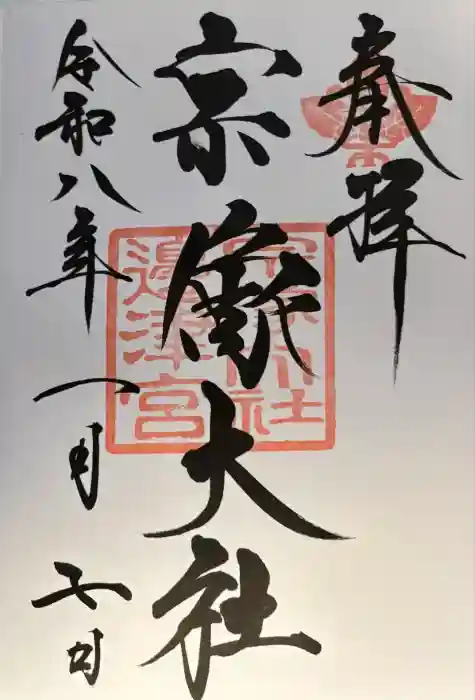 奉拝
宗像大社
宗像大社
邊津宮
令和八年一月七日